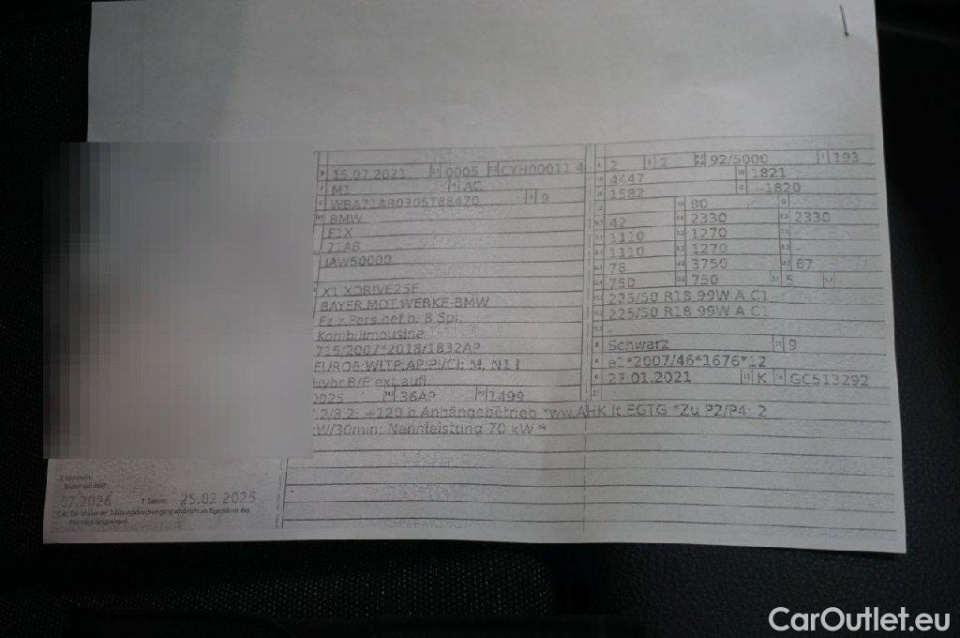 15.07.2021 0005 CYH00011 4
M1 AC
9
BMW
F1X
71AB
IAW50000
X1 XDRIVE25E
BAYER.MOT.WERKE-BMW
Fz.z.Pers.bef.b. 8 Spl.
Kombilimousine
715/2007*2018/1832AP
EURO6;WLTP;AP;PI/CI; M, N1 I
Hybr.B/E ext.aufl.
0025 36AP 1499
+120 b.Anhängebetrieb *ww.AHK lt.EGTG *Zu P2/P4: 2
kW/30min: Nennleistung 70 kW *
2 2 92/5000 193
4447 1821
1582 -1820
80
42 2330 2330
1110 1270
1110 1270 -
78 3750 67
750 750 5
225/50 R18 99W A C1
225/50 R18 99W A C1
-
Schwarz 9
e1*2007/46*1676*12
K GC513292
07.2026 25.02.2025
CarOutlet.eu